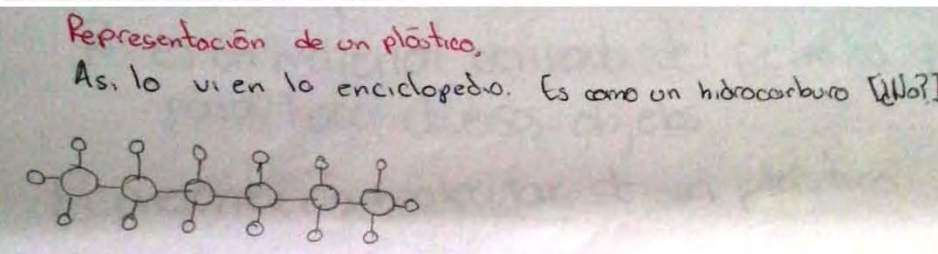 Representación de un plástico.
Así lo vi en la enciclopedia. Es como un hidrocarburo [¿No?]